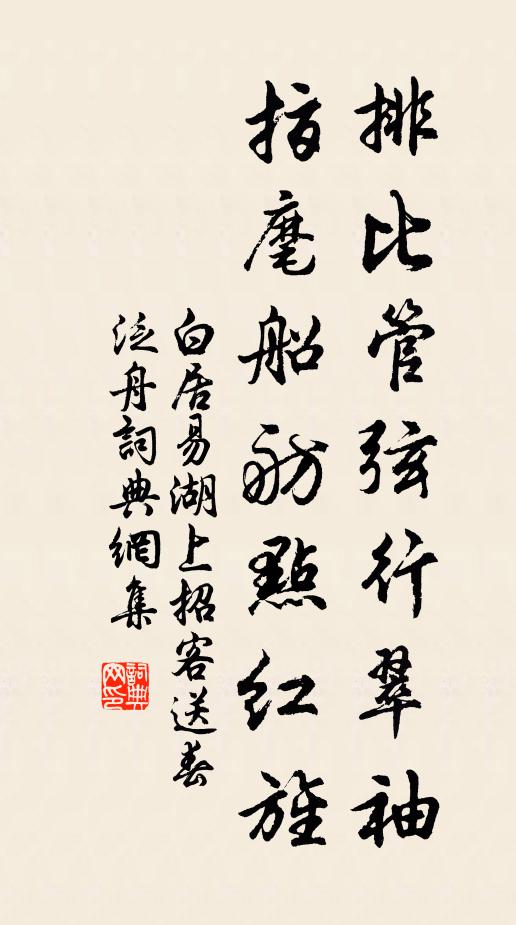 排比管弦行翠袖
指麾船舫點紅旌
白居易湖上招客送春
泛舟詞典網集
詞典網印